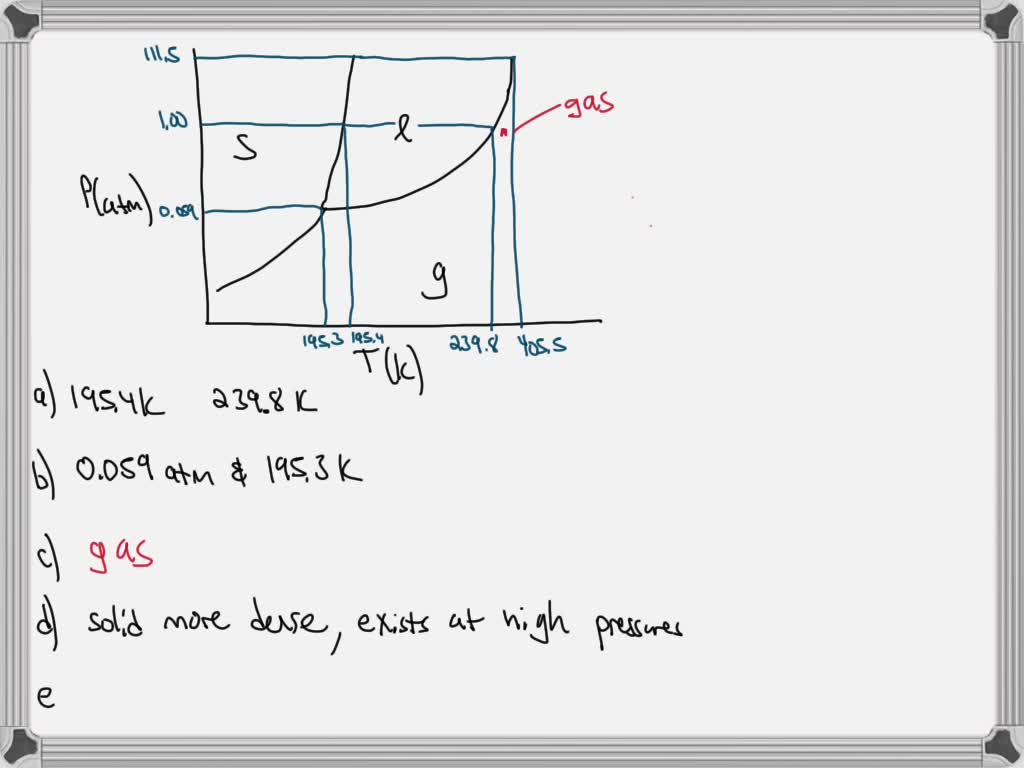 111.5
1.00
S
l
gas
P(atm)
0.059
g
195.3 195.4 239.8 405.5
T(K)
a) 195.4K 239.8 K
b) 0.059 atm & 195.3 K
c) gas
d) solid more dense, exists at high pressures
e